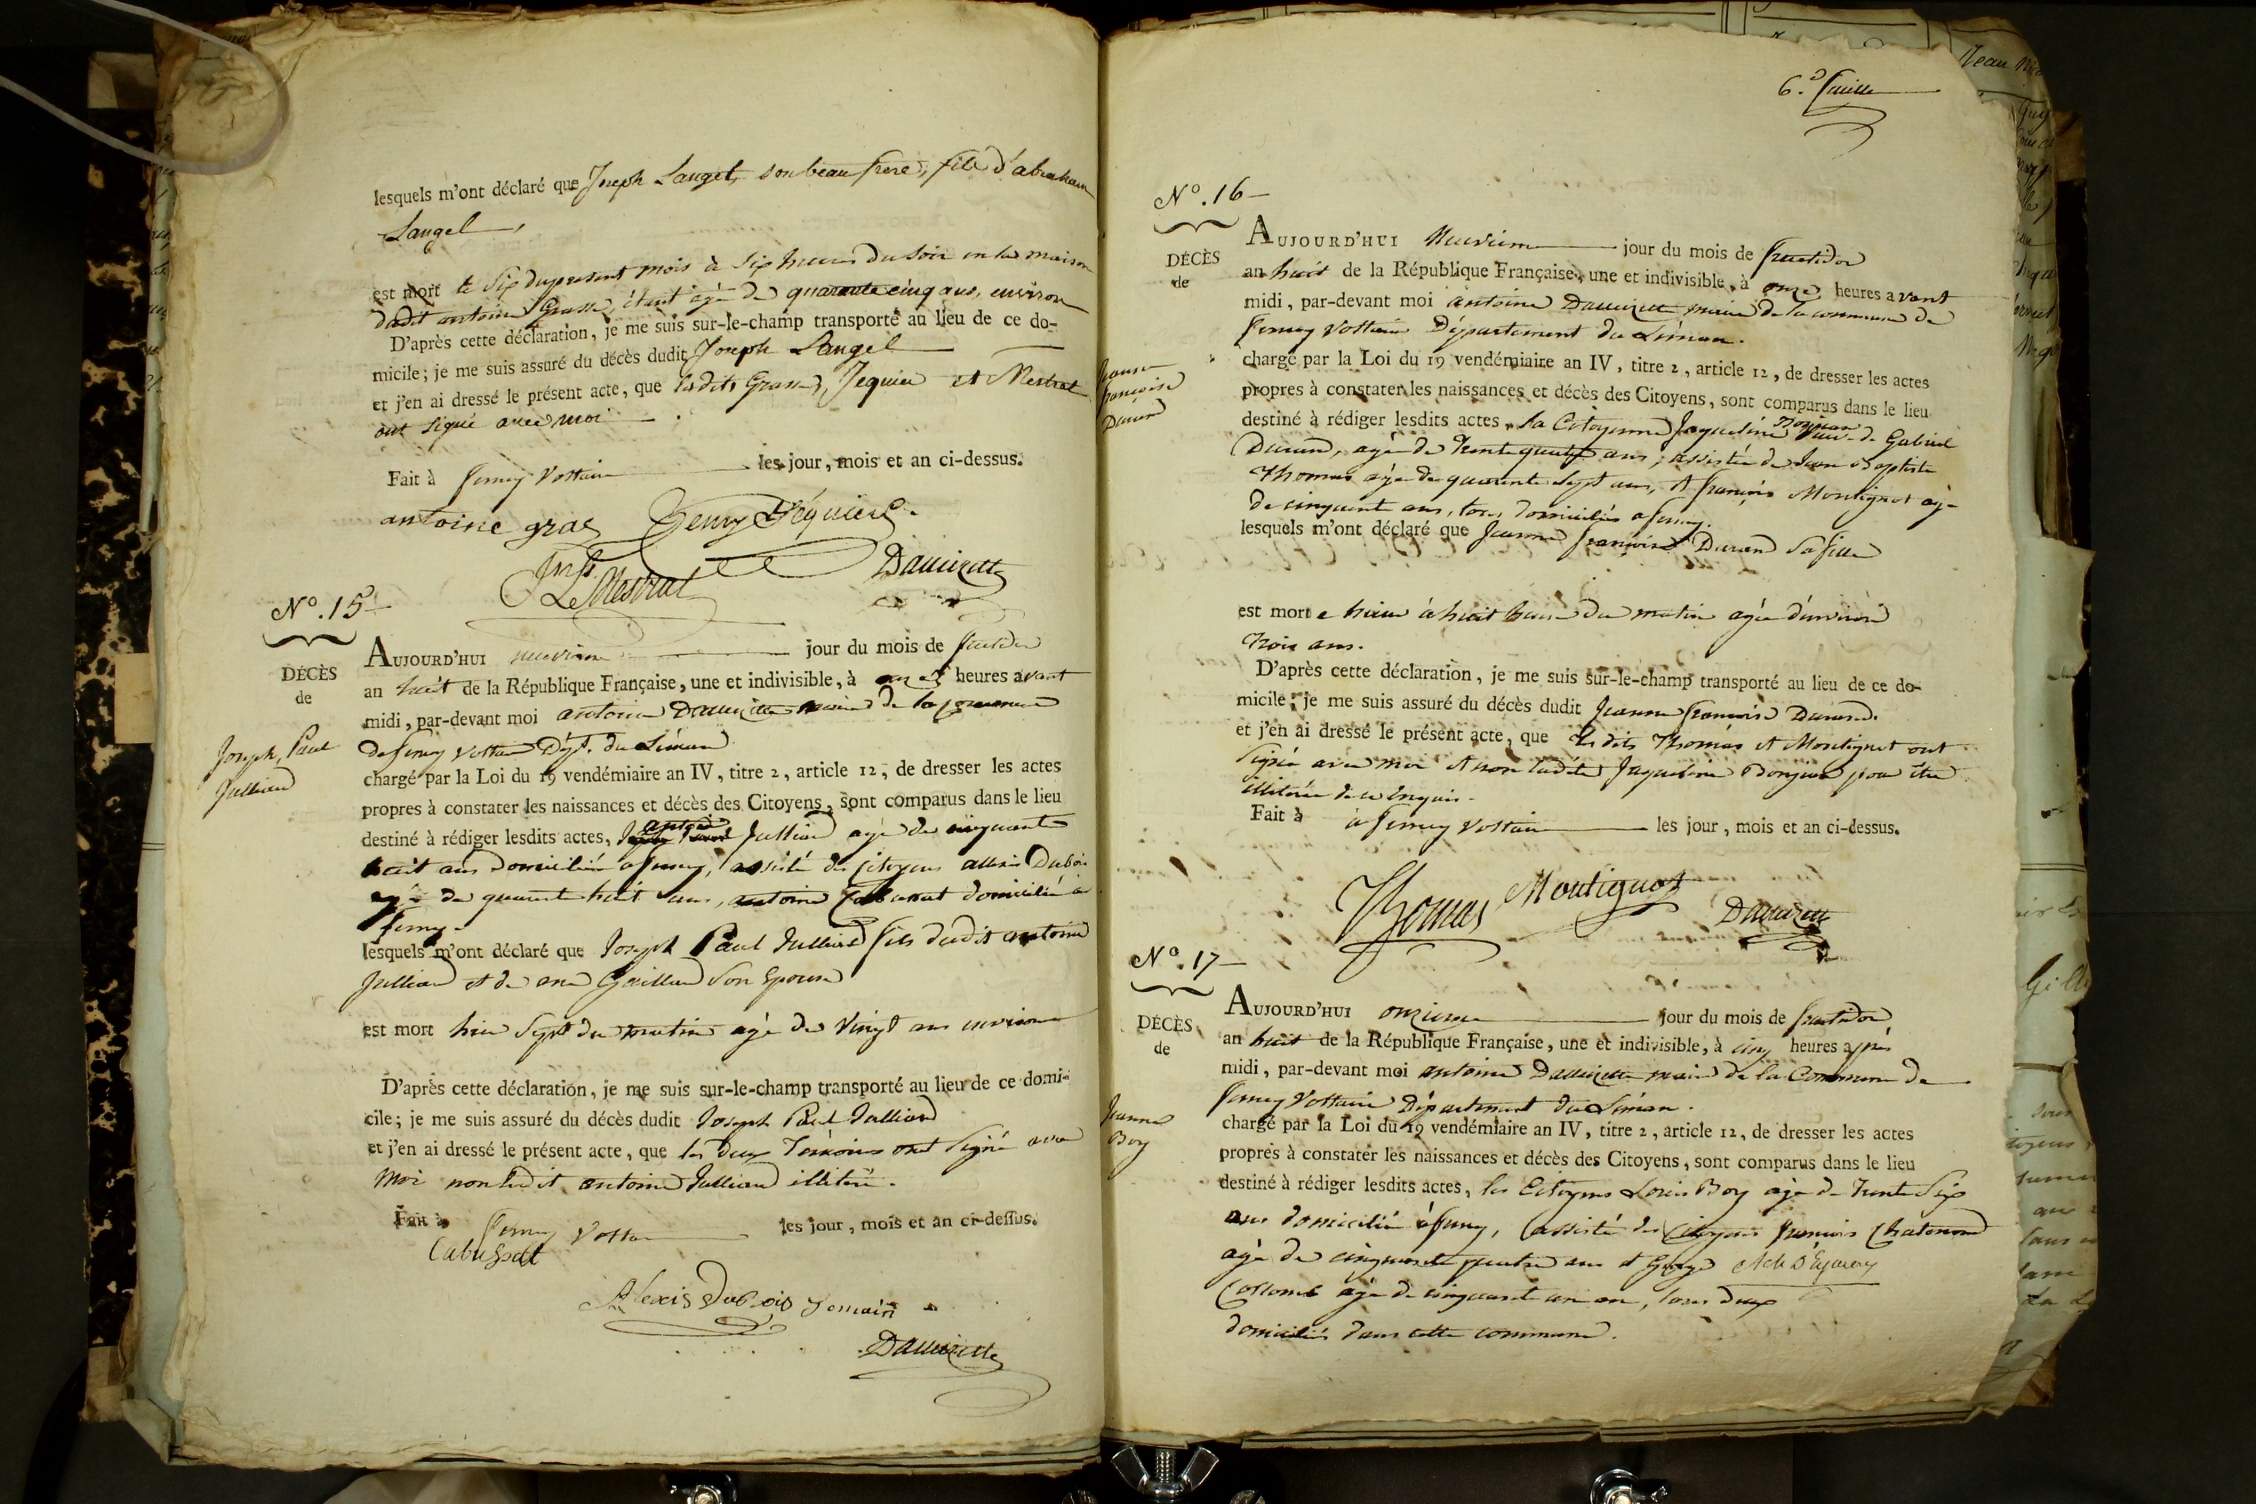 lesquels m'ont déclaré que Joseph Langel, son beau frere, fils d'abraham
Langel,
est mort le six du present mois à six heures du soir en la maison
dudit antoine Grasse, étant agé de quarante cinq ans, environ
D'après cette déclaration, je me suis sur-le-champ transporté au lieu de ce do-
micile; je me suis assuré du décès dudit Joseph Langel
et j'en ai dressé le présent acte, que lesdits Grasse, Jequier et Mestrat
ont signé avec moi
Fait à ferney Voltaire les jour, mois et an ci-dessus.
antoine gras Henry Jéquier
Mestrat Dauizette
N.º 15
DÉCÈS
de
Joseph, Paul
Julliard
AUJOURD'HUI neuvieme jour du mois de fructidor
an huit de la République Française, une et indivisible, à onze heures avant
midi, par-devant moi antoine Dauizette maire de la commune
de ferney Voltaire Dépt. du Léman
chargé par la Loi du 19 vendémiaire an IV, titre 2, article 12, de dresser les actes
propres à constater les naissances et décès des Citoyens, sont comparus dans le lieu
destiné à rédiger lesdits actes, antoine Julliard agé de cinquante
huit ans domicilié a ferney, assisté des citoyens allexis Dubois
agé de quarante huit ans, antoine Cabussat domicilié à
ferney.
lesquels m'ont déclaré que Joseph Paul Julliard fils dudit antoine
Julliard et de ane Gaillard son Epouse
est mort hier sept du matin agé de vingt ans environ
D'après cette déclaration, je me suis sur-le-champ transporté au lieu de ce domi-
cile; je me suis assuré du décès dudit Joseph Paul Julliard
et j'en ai dressé le présent acte, que les deux Témoins ont signé avec
moi non ledit antoine Julliard illiteré.
Fait à ferney Voltaire les jour, mois et an ci-dessus.
Cabussat
Alexis Dubois Temain
Dauizette
6.e feuille
N.º 16
DÉCÈS
de
Jeanne
francoise
Durand
AUJOURD'HUI Neuvieme jour du mois de fructidor
an huit de la République Française, une et indivisible, à onze heures avant
midi, par-devant moi antoine Dauizette maire de la commune de
ferney Voltaire Département du Léman.
chargé par la Loi du 19 vendémiaire an IV, titre 2, article 12, de dresser les actes
propres à constater les naissances et décès des Citoyens, sont comparus dans le lieu
destiné à rédiger lesdits actes, la Citoyenne Jaqueline de Gabriel
Durand, agée de trente quatre ans, assistée de Jean Baptiste
Thomas agé de quarante sept ans, et françois Montignot agé
de cinquante ans, tous domiciliés a ferney.
lesquels m'ont déclaré que Jeanne françoise Durand sa fille
est morte hier à huit heures du matin agée d'environ
trois ans.
D'après cette déclaration, je me suis sur-le-champ transporté au lieu de ce do-
micile; je me suis assuré du décès dudit Jeanne françoise Durand.
et j'en ai dressé le présent acte, que lesdits Thomas et Montignot ont
signé avec moi et non ladite Jaqueline Bonjour pour être
illiterée de ce enquis.
Fait à à ferney Voltaire les jour, mois et an ci-dessus.
Thomas Montignot Dauizette
N.º 17
DÉCÈS
de
Jeanne
Boy
AUJOURD'HUI onzieme jour du mois de fructidor
an huit de la République Française, une et indivisible, à cinq heures après
midi, par-devant moi antoine Dauizette maire de la Commune de
ferney Voltaire Département du Léman.
chargé par la Loi du 19 vendémiaire an IV, titre 2, article 12, de dresser les actes
propres à constater les naissances et décès des Citoyens, sont comparus dans le lieu
destiné à rédiger lesdits actes, les Citoyens Louis Boy agé de trente six
ans domicilié à ferney, assisté des Citoyens françois Chatenoud
agé de cinquante quatre ans et
Collomb agé de cinquante un an, tous deux
domiciliés dans cette commune.